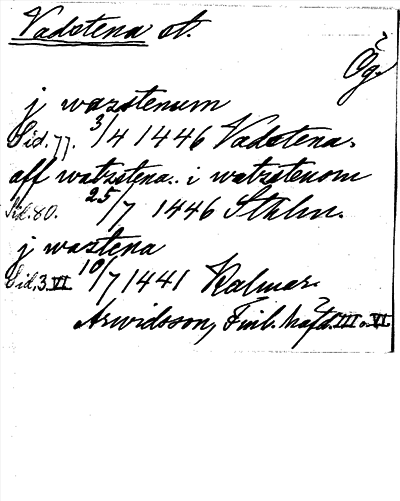 Vadstena st.
Ög.
j wazstenum
Sid. 77. 3/4 1446 Vadstena.
aff watzstena.. i watzstenom
Sid. 80. 25/7 1446 Sthlm.
j wastena
Sid. 3. VI 10/7 1441 Kalmar.
Arwidsson, Finl. häfd. III o. VI